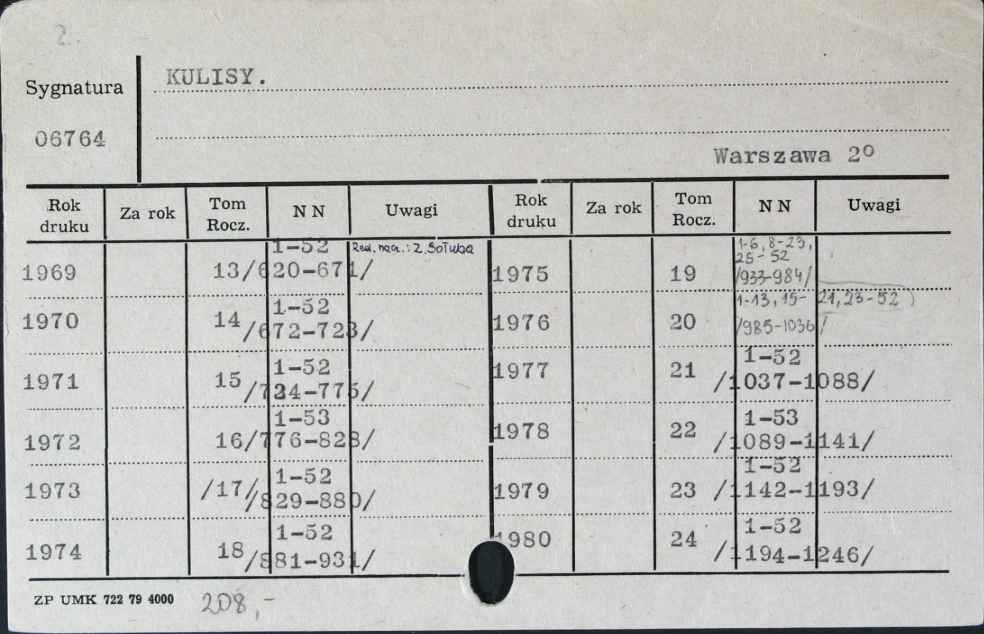 2.
Sygnatura
KULISY.
06764
Warszawa 2º
Rok druku Za rok Tom Rocz. N N Uwagi Rok druku Za rok Tom Rocz. N N Uwagi
1969 13 1-52 /620-671/ Red. nacz.: Z. Sołuba
1970 14 1-52 /672-723/
1971 15 1-52 /724-775/
1972 16 1-53 /776-828/
1973 /17/ 1-52 /829-880/
1974 18 1-52 /881-931/
1975 19 1-6, 8-23, 25-52 /933-984/
1976 20 1-13, 15-21, 23-52 /985-1036/
1977 21 1-52 /1037-1088/
1978 22 1-53 /1089-1141/
1979 23 1-52 /1142-1193/
1980 24 1-52 /1194-1246/
ZP UMK 722 79 4000
208,-